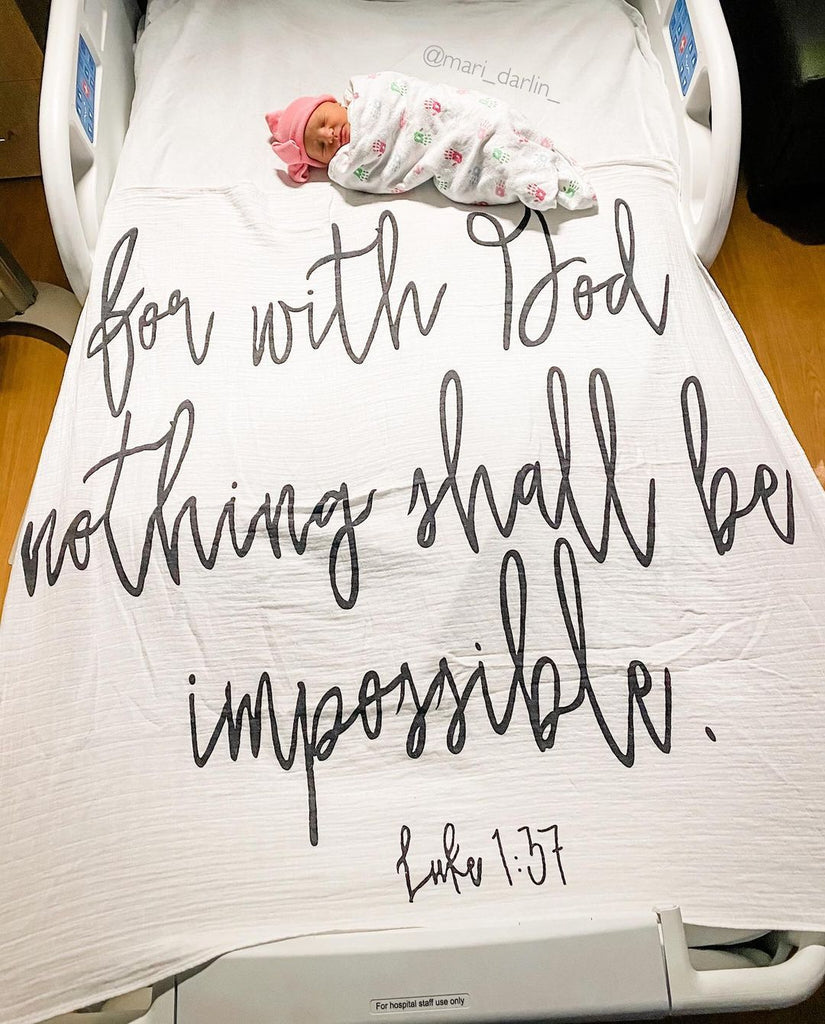 @mari_darlin_
for with God
nothing shall be
impossible.
Luke 1:37
For hospital staff use only